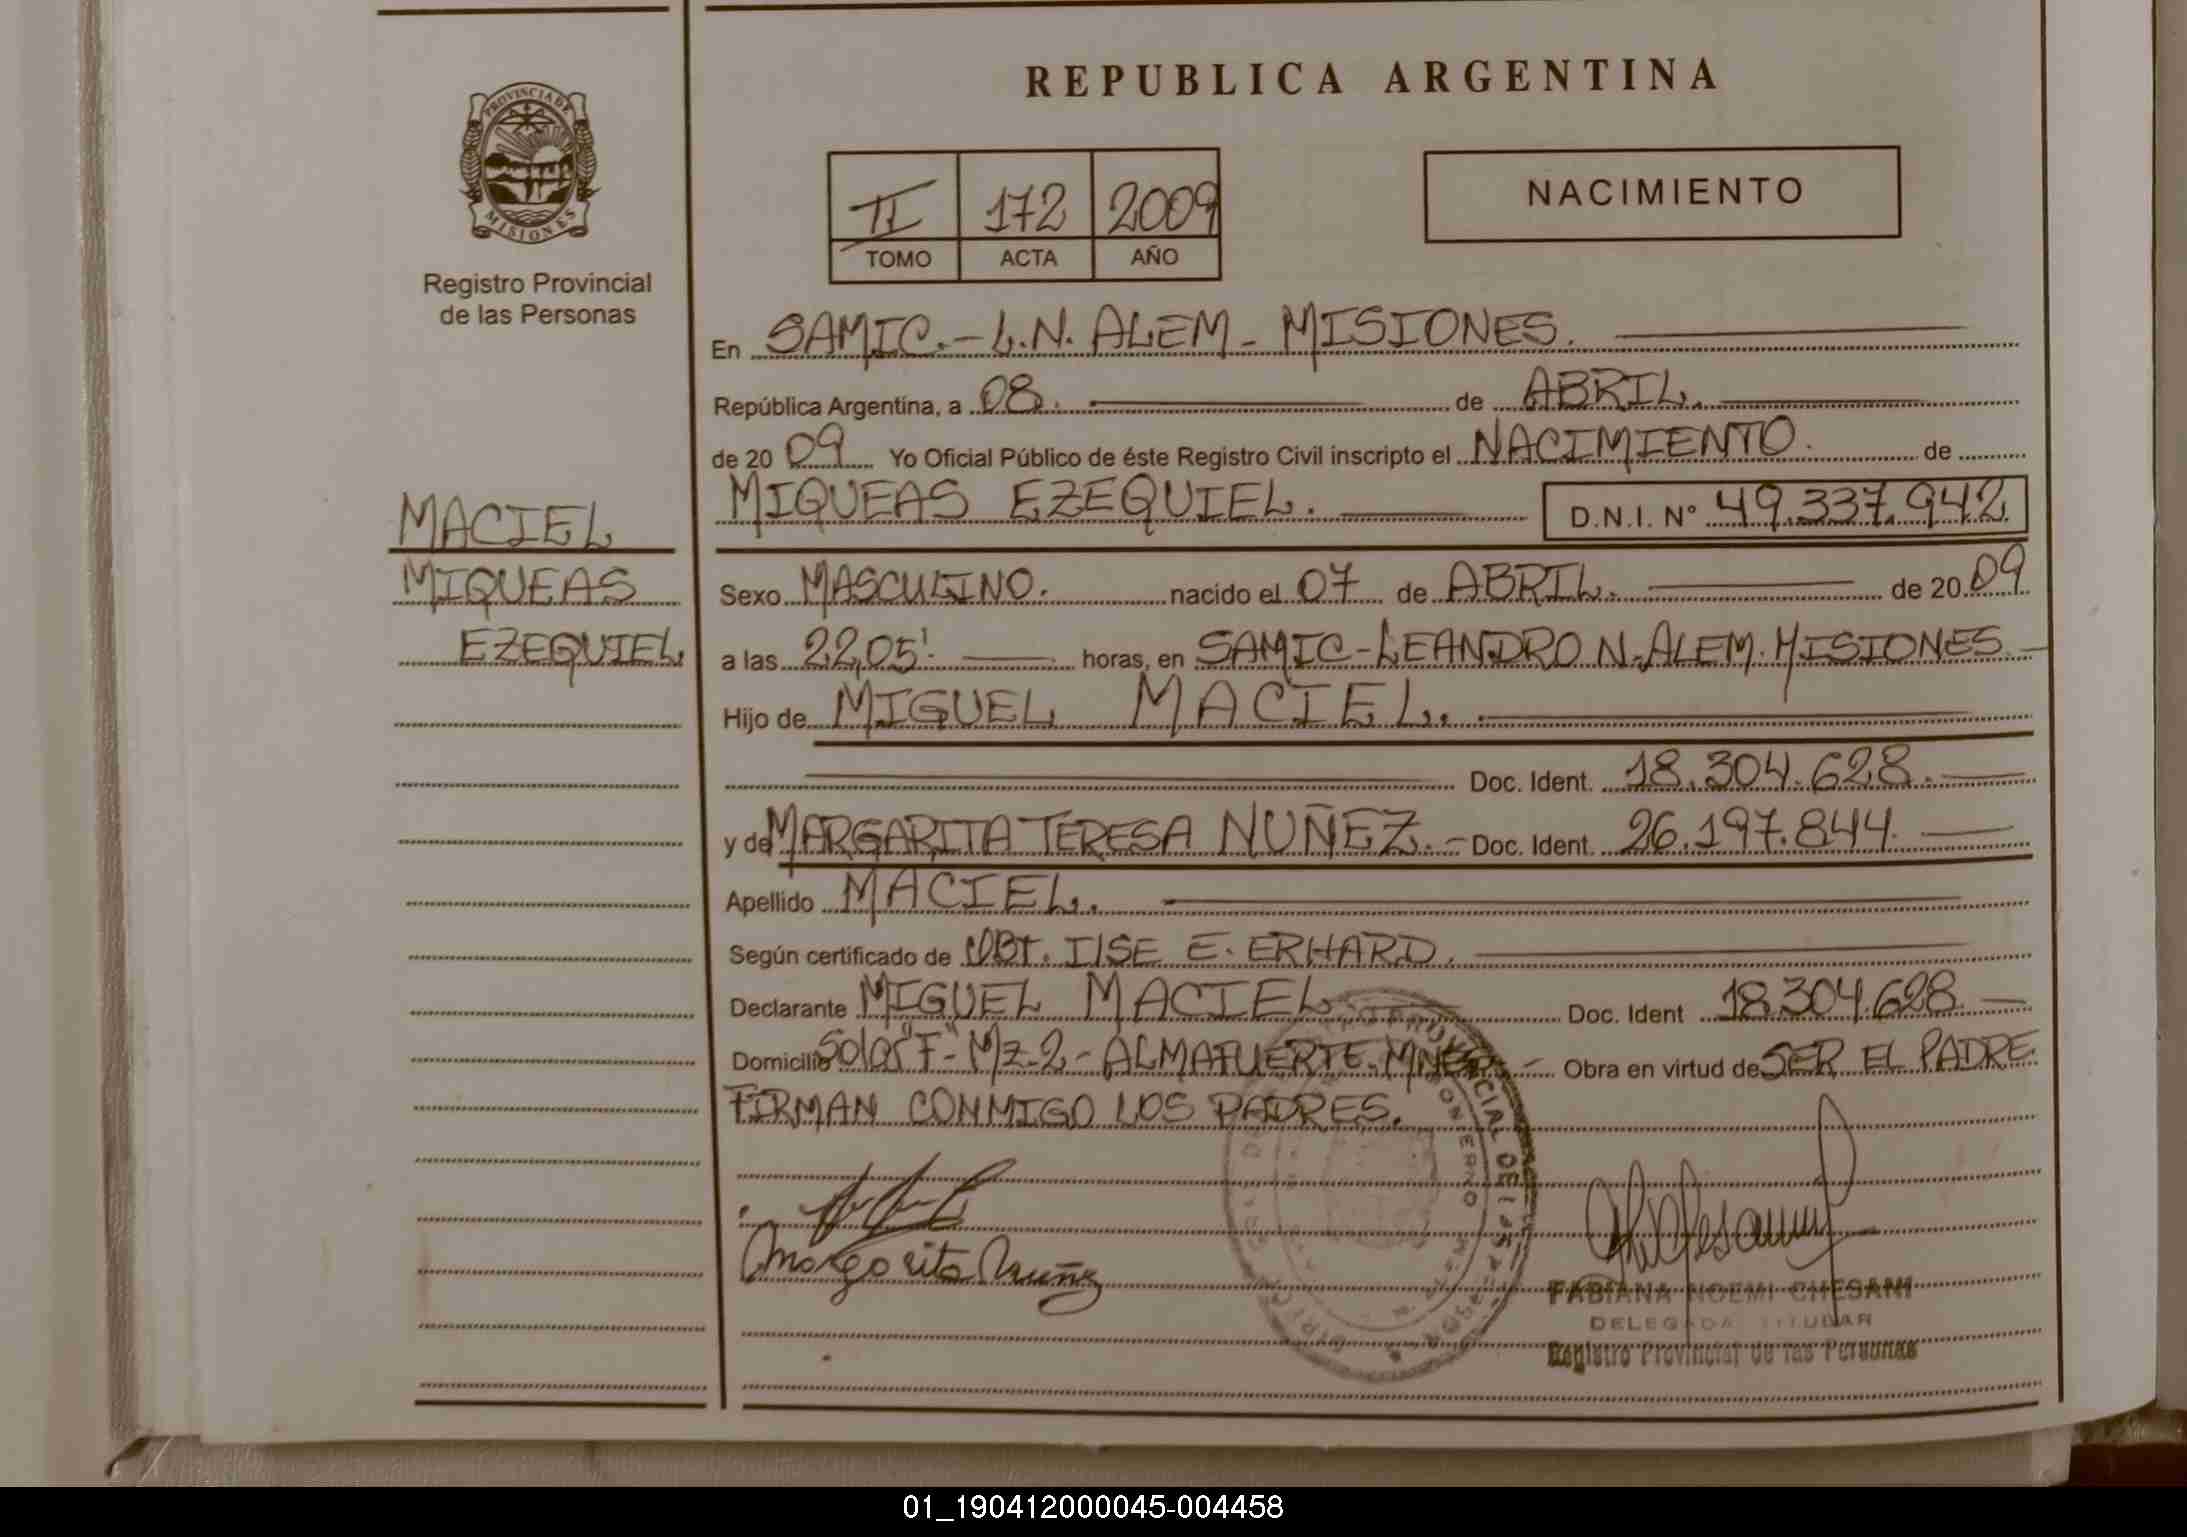 REPUBLICA ARGENTINA
PROVINCIA DE
MISIONES
Registro Provincial
de las Personas
II 172 2009
TOMO ACTA AÑO
NACIMIENTO
En SAMIC.- L.N. ALEM - MISIONES.
República Argentina, a 08. de ABRIL.
de 20 09 Yo Oficial Público de éste Registro Civil inscripto el NACIMIENTO. de
MIQUEAS EZEQUIEL. D.N.I. N° 49.337.942
MACIEL
MIQUEAS
EZEQUIEL
Sexo MASCULINO. nacido el 07 de ABRIL. de 20 09
a las 22,05' horas, en SAMIC-LEANDRO N. ALEM. MISIONES
Hijo de MIGUEL MACIEL.
Doc. Ident. 18.304.628.
y de MARGARITA TERESA NUÑEZ.- Doc. Ident. 26.197.844.
Apellido MACIEL.
Según certificado de OBT. ILSE E. ERHARD.
Declarante MIGUEL MACIEL Doc. Ident 18.304.628.
Domicilio Solar "F"- Mz-2- ALMAFUERTE-MNES- Obra en virtud de SER EL PADRE
FIRMAN CONMIGO LOS PADRES.
Margarita Nuñez
FABIANA NOEMI CHESANI
DELEGADA TITULAR
Registro Provincial de las Personas
01_190412000045-004458